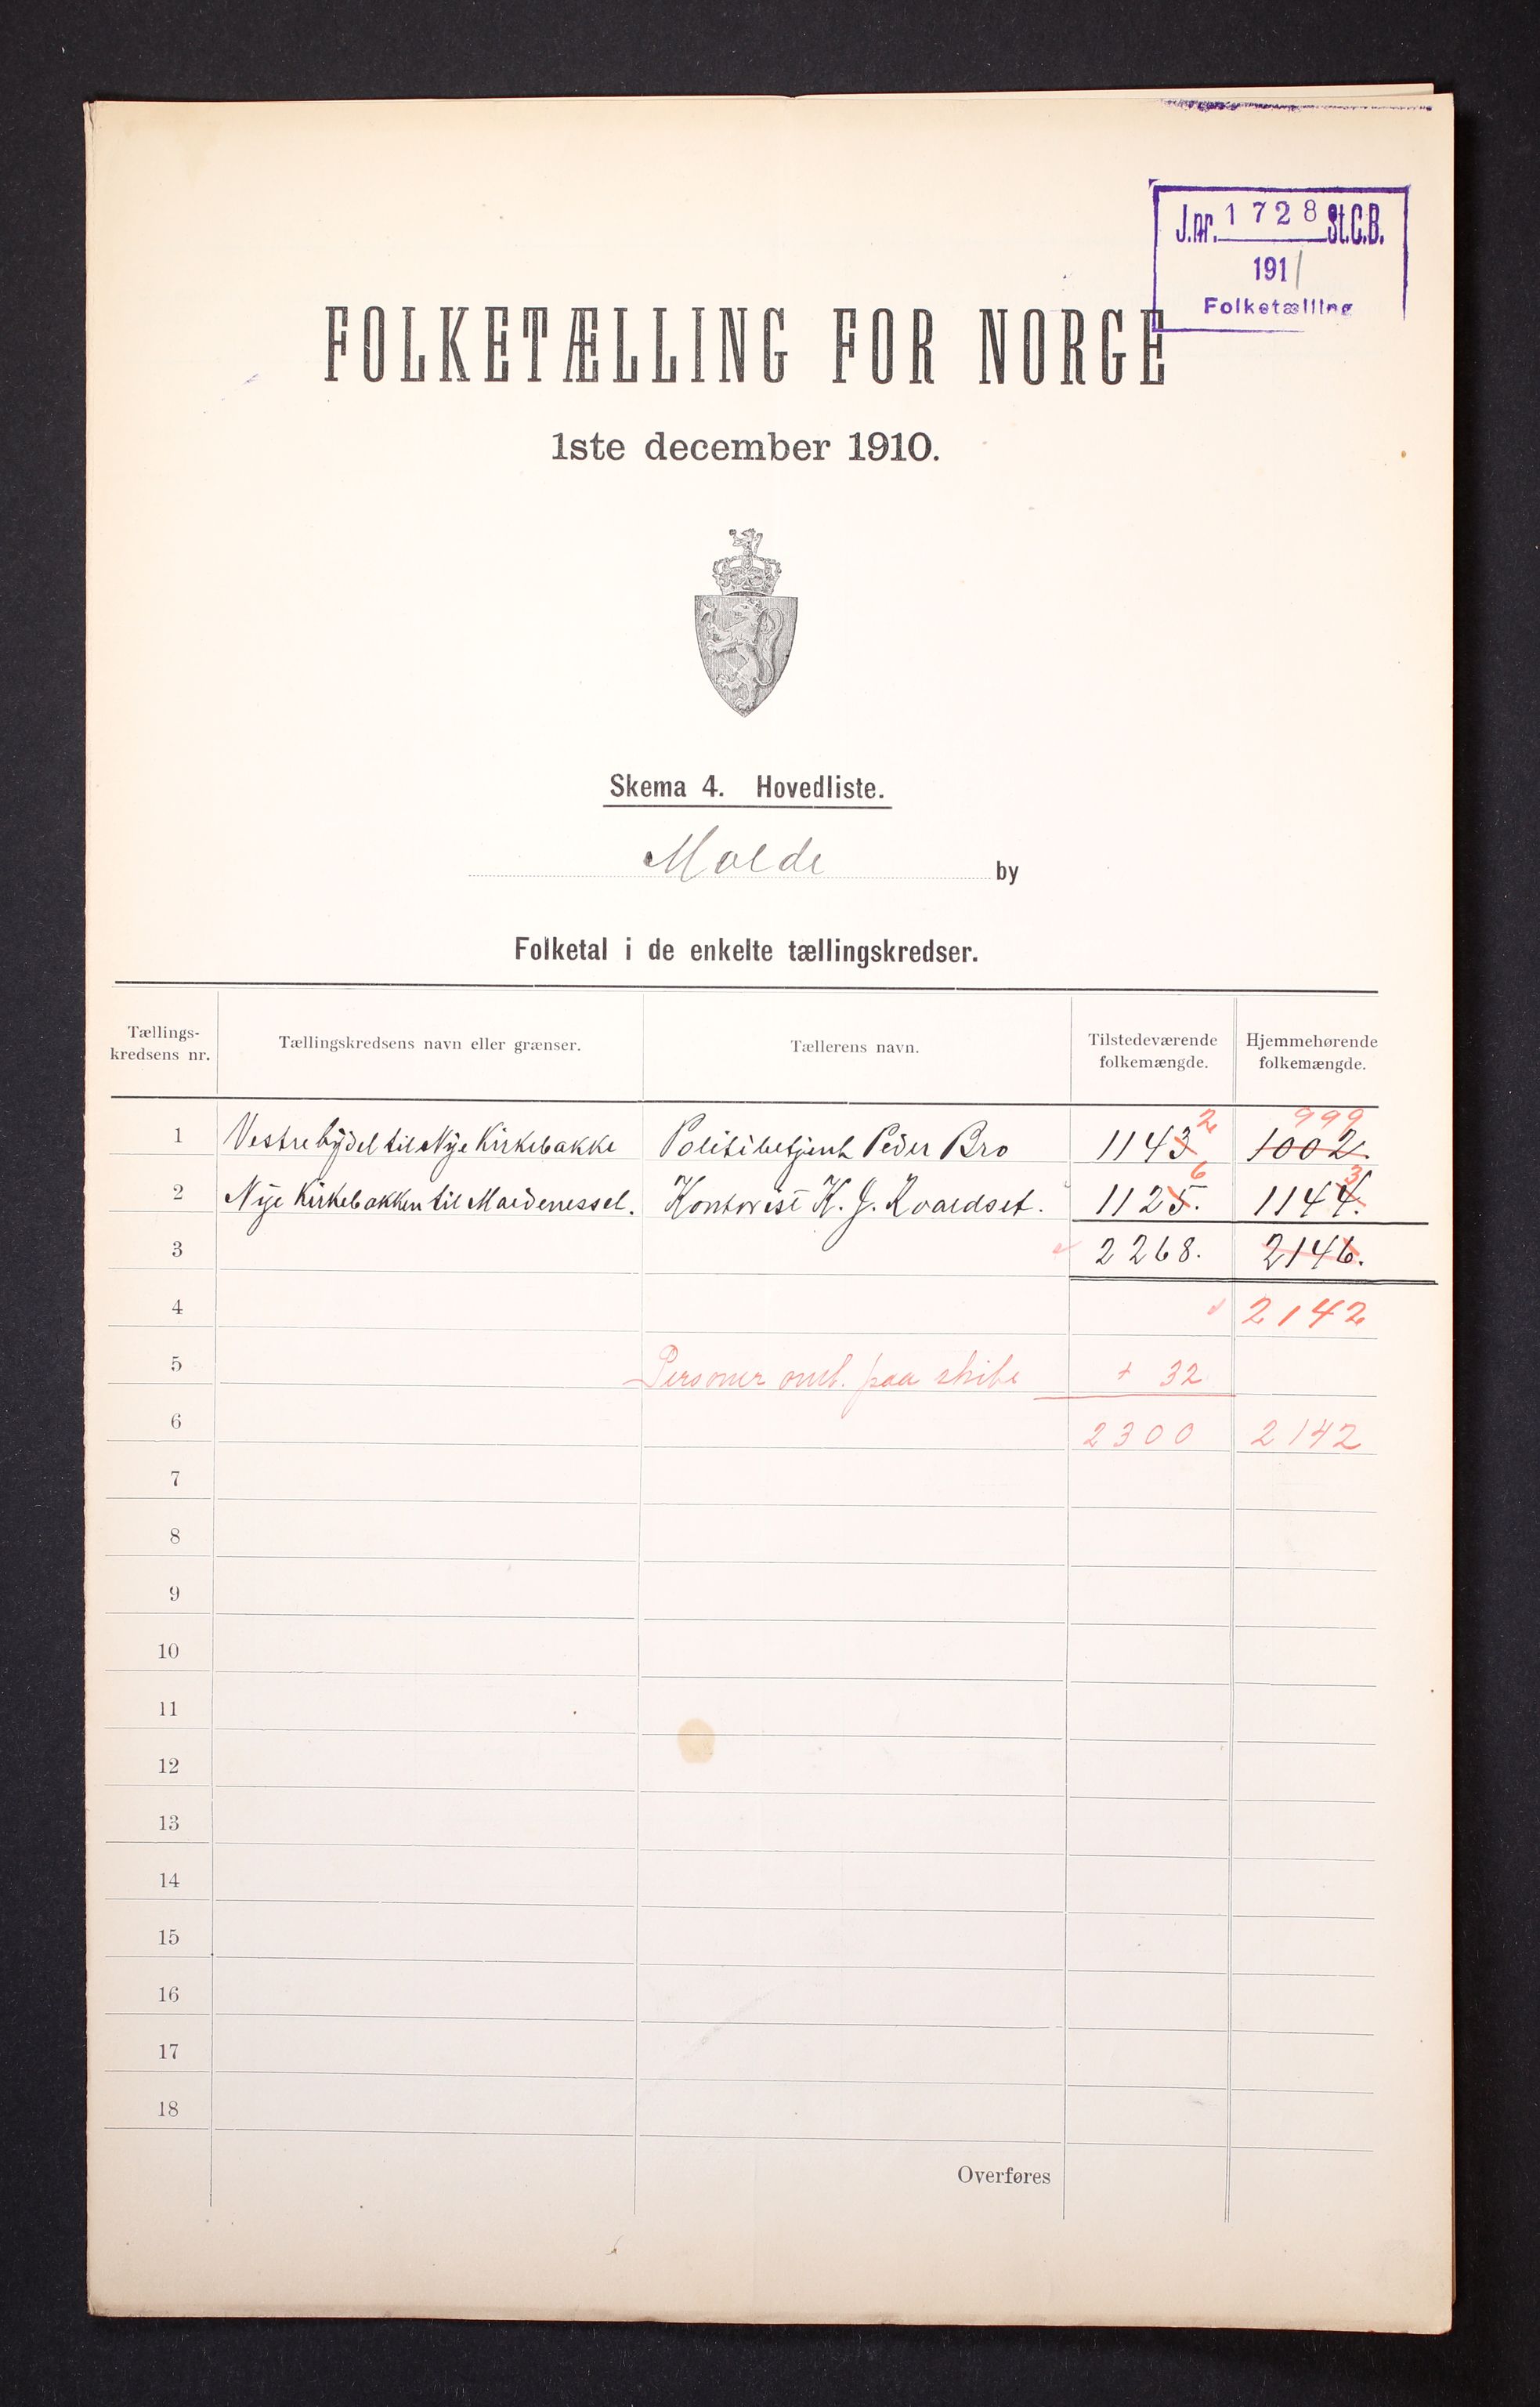 J.nr. 1728 St.C.B.
1911
Folketælling
FOLKETÆLLING FOR NORGE
1ste december 1910.
Skema 4. Hovedliste.
Molde by
Folketal i de enkelte tællingskredser.
Tællings-kredsens nr. Tællingskredsens navn eller grænser. Tællerens navn. Tilstedeværende folkemængde. Hjemmehørende folkemængde.
2 999
1 Vestre bydel til Nye Kirkebakke Politibetjent Peder Bro 1143 1002.
6 3
2 Nye Kirkebakken til Moldenessel. Kontorist K. J. Roaldset. 1125. 1144.
3 2268. 2146.
4 2142
5 Personer omb. paa skibe + 32
6 2300 2142
7
8
9
10
11
12
13
14
15
16
17
18
Overføres